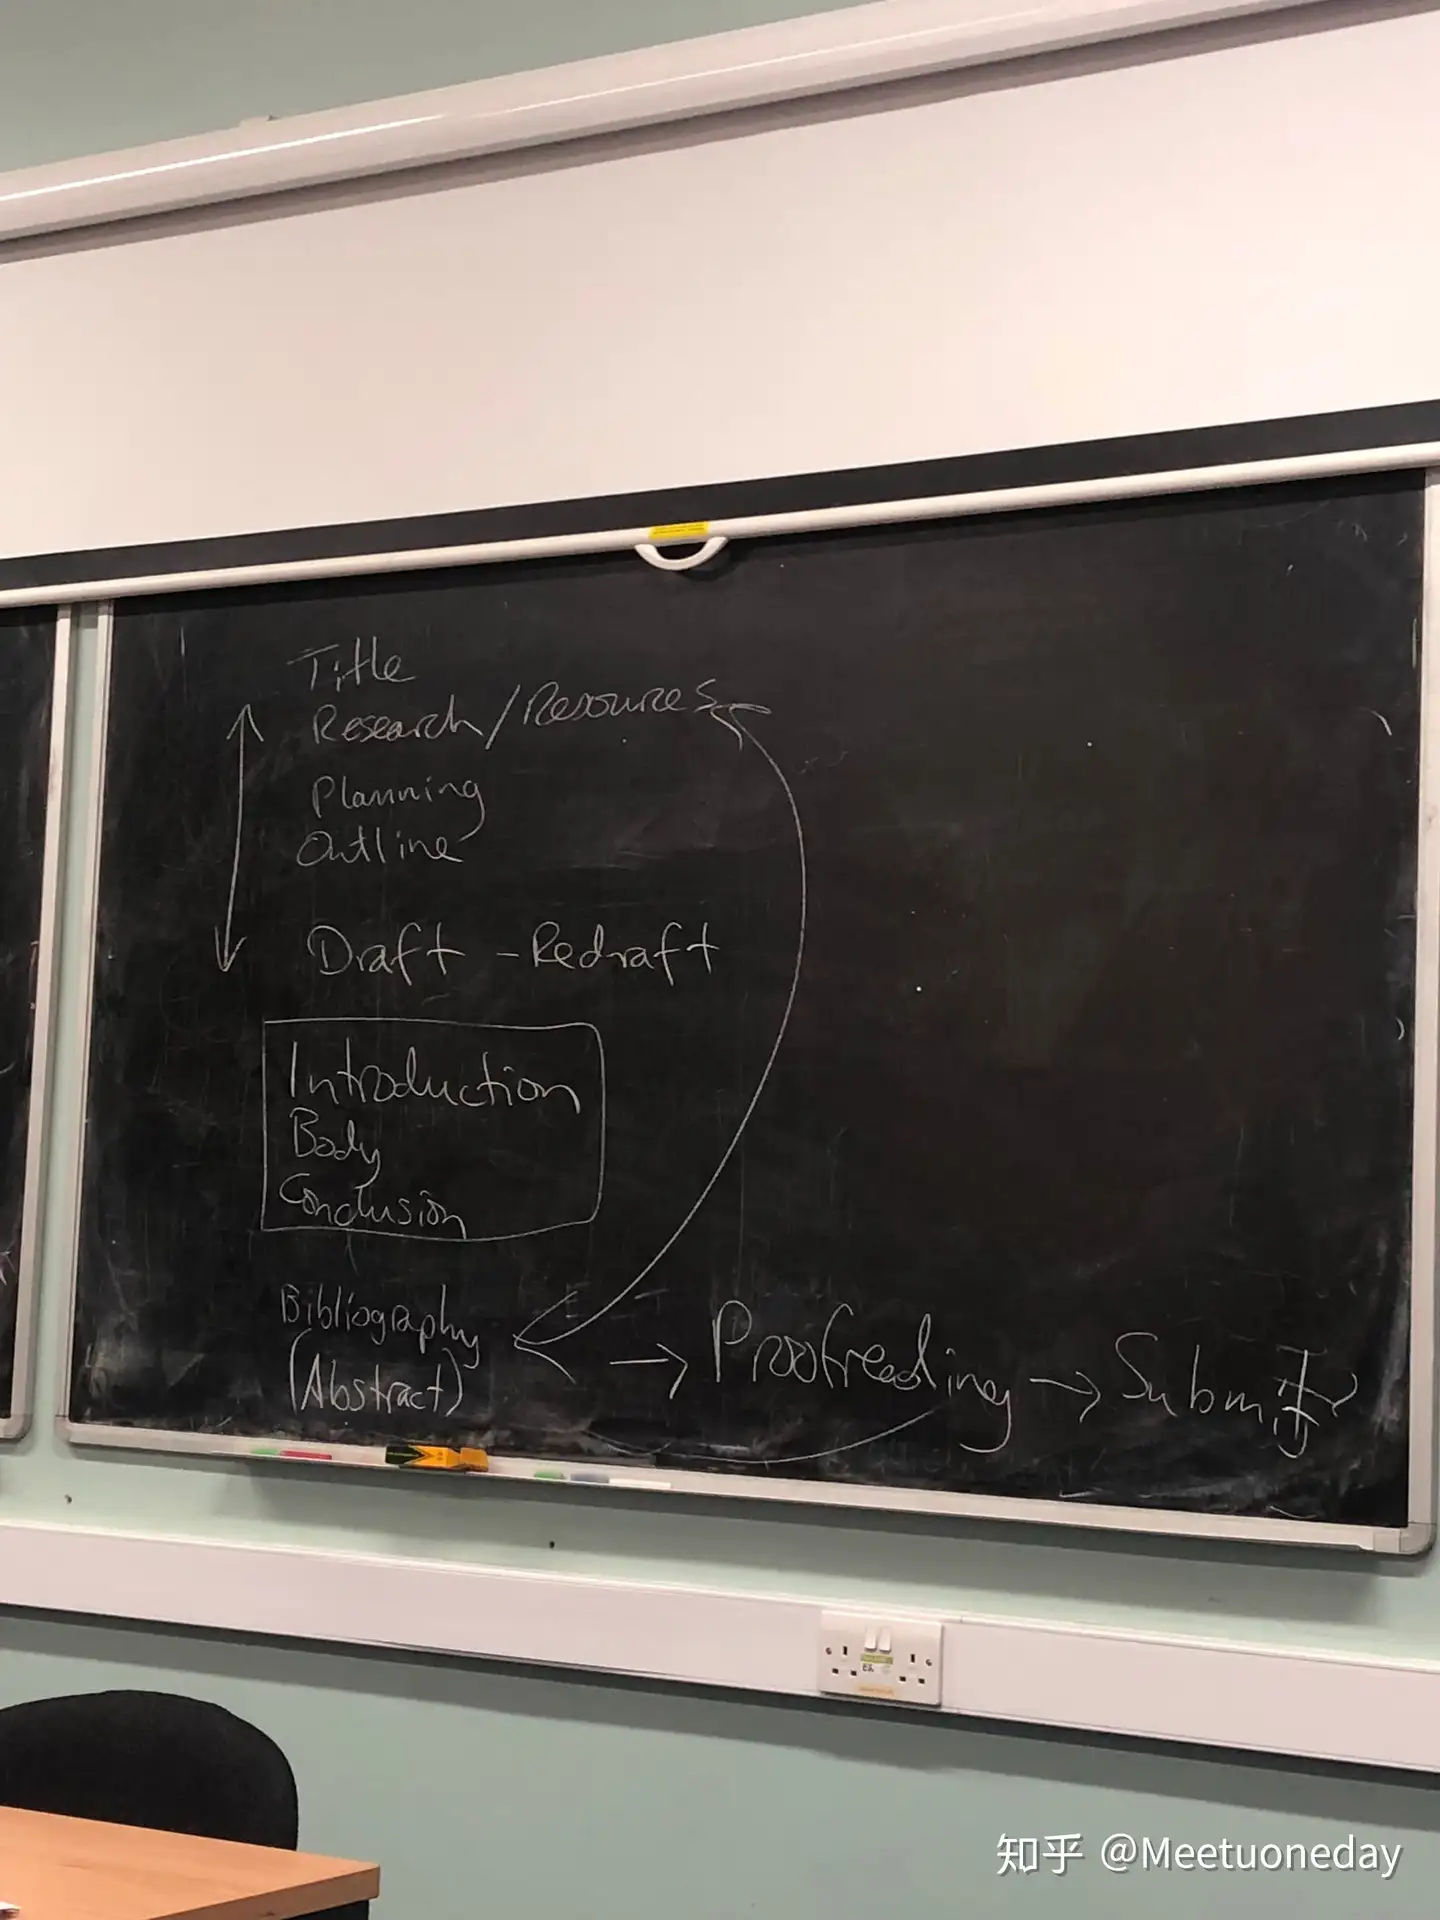 Title
Research/Resources
Planning
Outline
Draft - Redraft
Introduction
Body
Conclusion
Bibliography
(Abstract)
→ Proofreading → Submit
知乎 @Meetuoneday